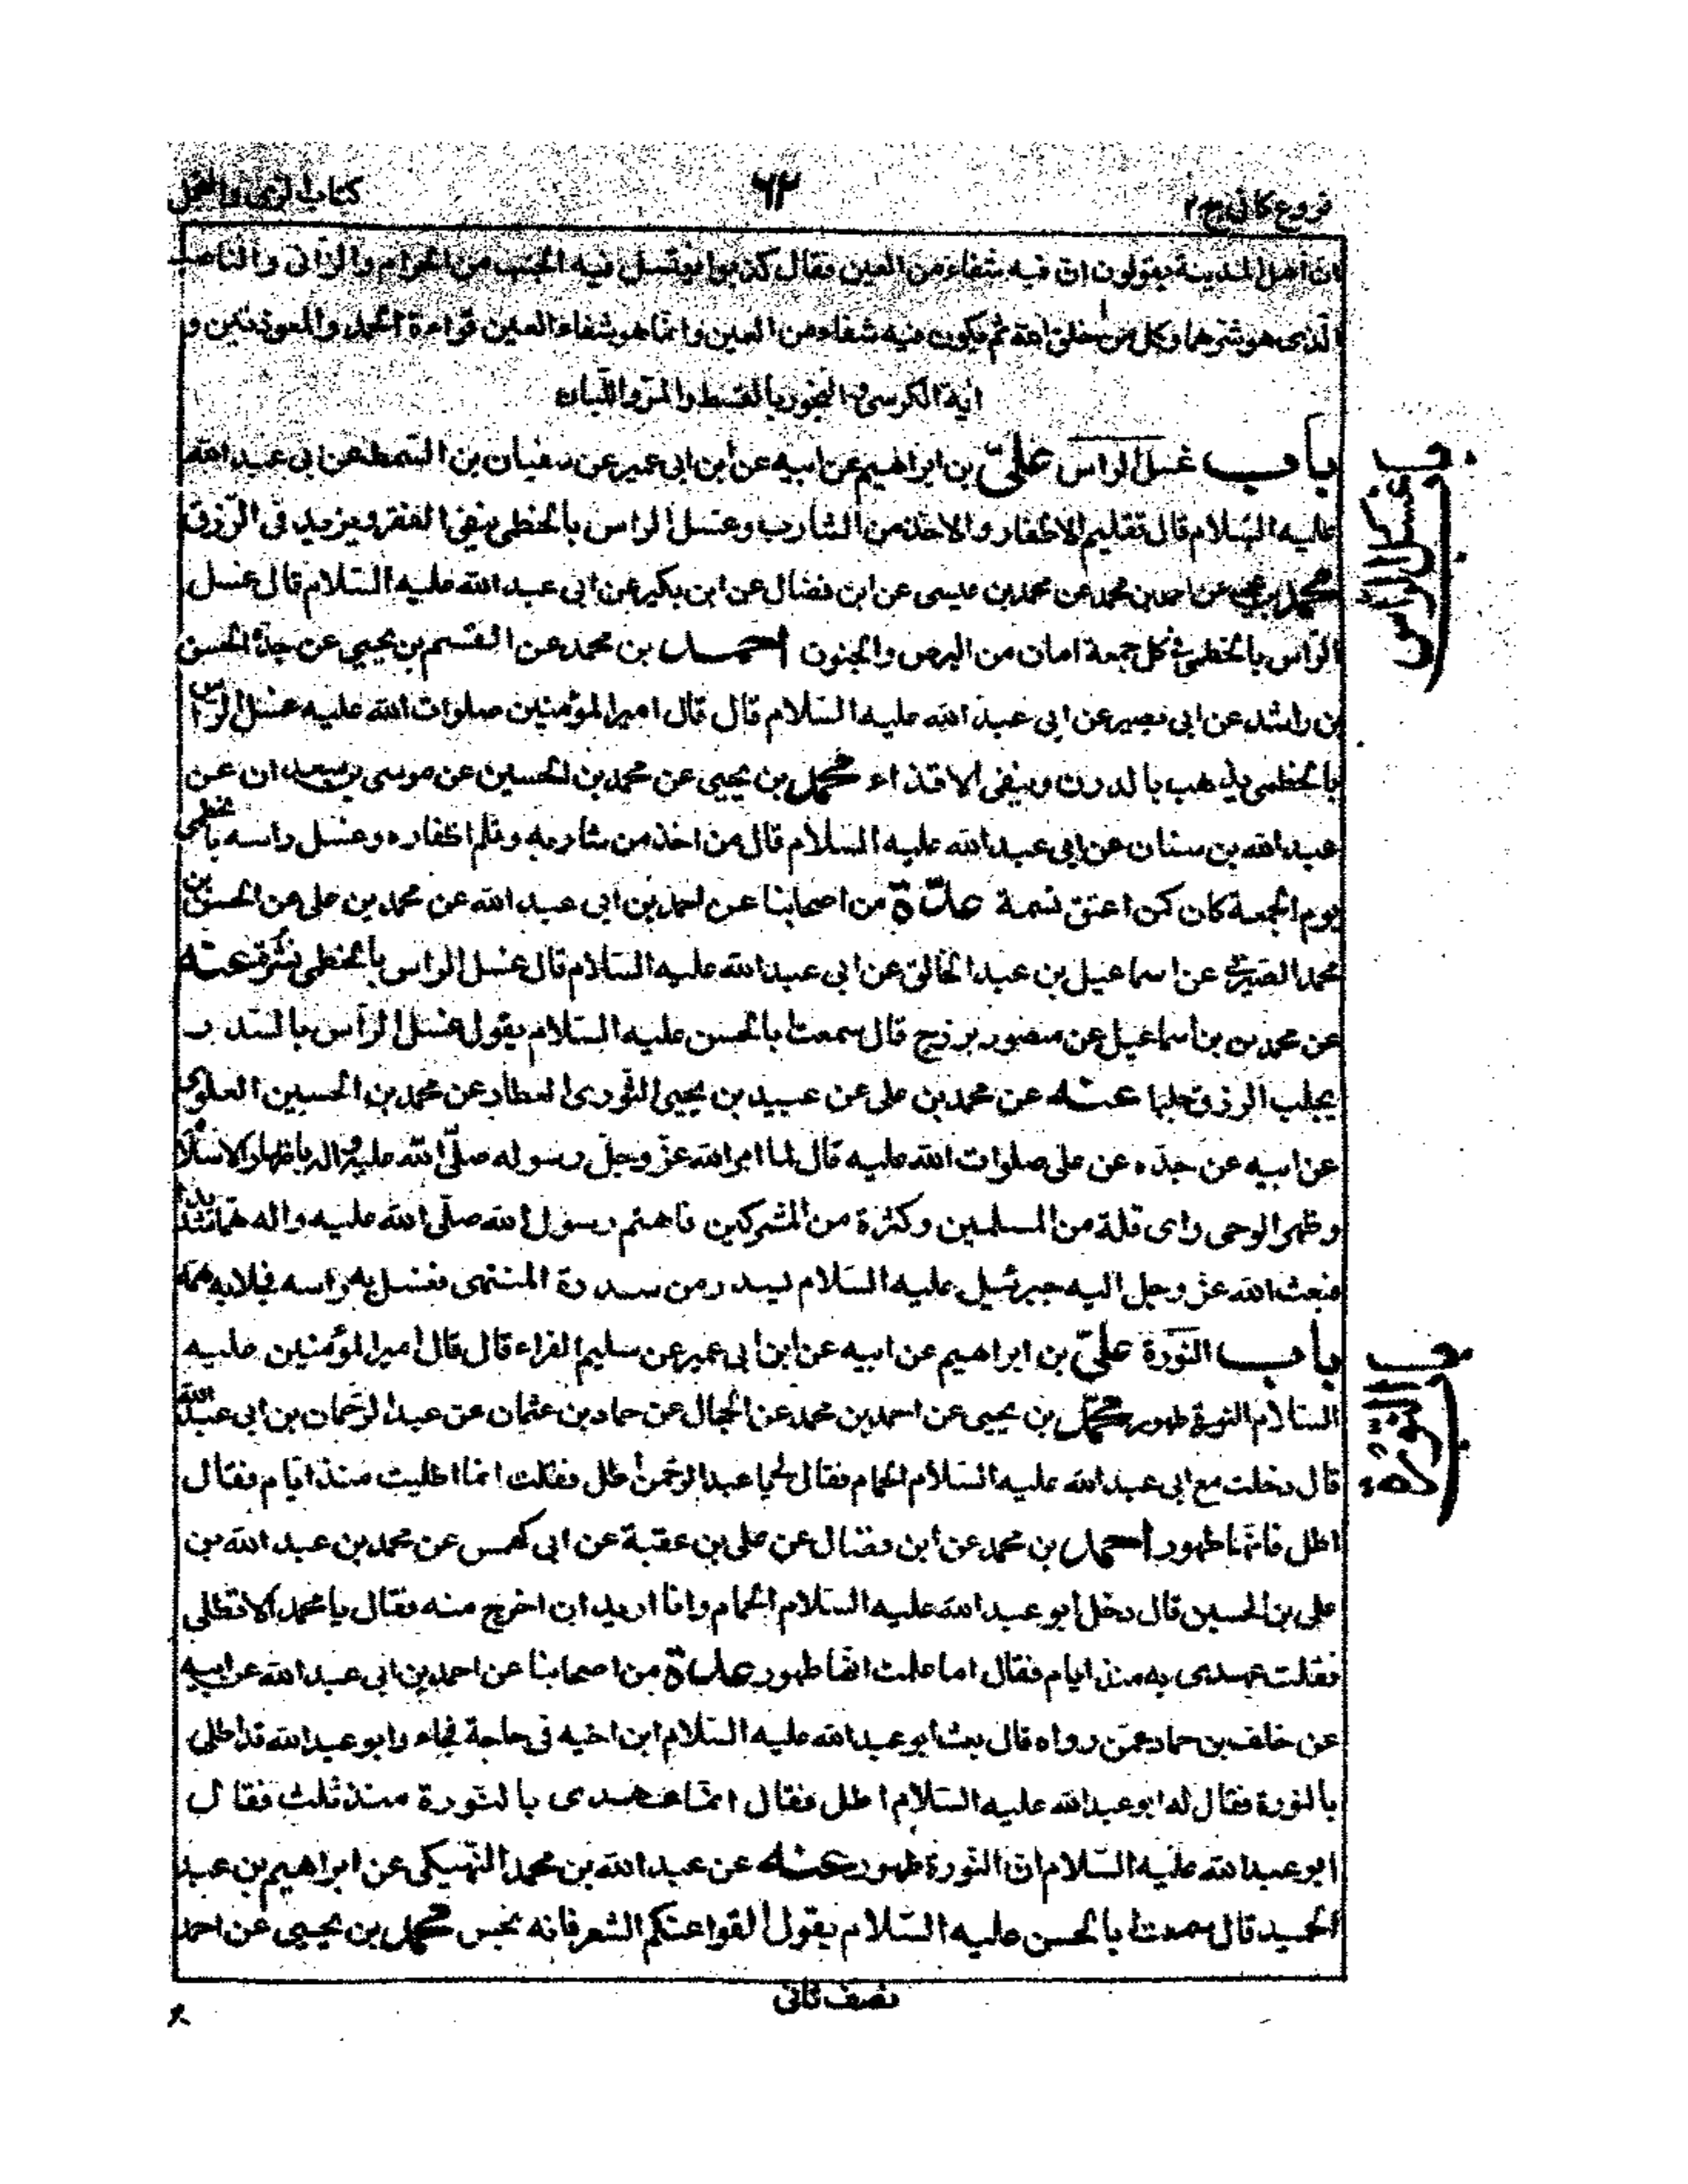 فروع کافی ج ۲
۶۲
کتاب الزی والتجمل
ان اهل المدینة یقولون ان فیه شفاء من العین فقال کذبوا یغتسل فیه الجنب من الحرام والزانی والناصب
الذی هو شرهما وکل من خلق الله ثم یکون فیه شفاء من العین وانما هو شفاء العین قراءة الحمد والمعوذتین و
آیة الکرسی والبخور بالقسط والمر واللبان
باب غسل الراس علی بن ابراهیم عن ابیه عن ابن ابی عمیر عن سفیان بن السمط عن ابی عبد الله
علیه السلام قال تقلیم الاظفار والاخذ من الشارب وغسل الراس بالخطمی ینفی الفقر ویزید فی الرزق
محمد بن یحیی عن احمد بن محمد عن محمد بن عیسی عن ابن فضال عن ابن بکیر عن ابی عبد الله علیه السلام قال غسل
الراس بالخطمی فی کل جمعة امان من البرص والجنون احمد بن محمد عن القسم بن یحیی عن جده الحسن
بن راشد عن ابی بصیر عن ابی عبد الله علیه السلام قال قال امیر المؤمنین صلوات الله علیه غسل الراس
بالخطمی یذهب بالدرن وینفی الاقذاء محمد بن یحیی عن محمد بن الحسین عن موسی بن سعدان عن
عبد الله بن سنان عن ابی عبد الله علیه السلام قال من اخذ من شاربه وقلم اظفاره وغسل راسه بالخطمی
یوم الجمعة کان کمن اعتق نسمة عدة من اصحابنا عن احمد بن ابی عبد الله عن محمد بن علی عن الحسن بن
محمد الصیرفی عن اسماعیل بن عبد الخالق عن ابی عبد الله علیه السلام قال غسل الراس بالخطمی نشرة عنه
عن محمد بن اسماعیل عن منصور بزرج قال سمعت ابا الحسن علیه السلام یقول غسل الراس بالسدر
یجلب الرزق جلبا عنه عن محمد بن علی عن عبید بن یحیی الثوری العطار عن محمد بن الحسین العلوی
عن ابیه عن جده عن علی صلوات الله علیه قال لما امر الله عز وجل رسوله صلی الله علیه واله باظهار الاسلام
وظهر الوحی رای قلة من المسلمین وکثرة من المشرکین فاهتم رسول الله صلی الله علیه واله هما شدیدا
فبعث الله عز وجل الیه جبرئیل علیه السلام بسدر من سدرة المنتهی فغسل به راسه فجلا به همه
باب النورة علی بن ابراهیم عن ابیه عن ابن ابی عمیر عن سلیم الفراء قال قال امیر المؤمنین علیه
السلام النورة طهور محمد بن یحیی عن احمد بن محمد عن الحجال عن حماد بن عثمان عن عبد الرحمان بن ابی عبد الله
قال دخلت مع ابی عبد الله علیه السلام الحمام فقال لی یا عبد الرحمن اطل فقلت انما اطلیت منذ ایام فقال
اطل فانها طهور احمد بن محمد عن ابن فضال عن علی بن عقبة عن ابی کهمس عن محمد بن عبد الله بن
علی بن الحسین قال دخل ابو عبد الله علیه السلام الحمام وانا ارید ان اخرج منه فقال یا محمد الا تطلی
فقلت عهدی به منذ ایام فقال اما علمت انها طهور عدة من اصحابنا عن احمد بن ابی عبد الله عن ابیه
عن خلف بن حماد عمن رواه قال بعث ابو عبد الله علیه السلام ابن اخیه فی حاجة فجاء وابو عبد الله قد اطلی
بالنورة فقال له ابو عبد الله علیه السلام اطل فقال انما عهدی بالنورة منذ ثلث فقال
ابو عبد الله علیه السلام ان النورة طهور عنه عن عبد الله بن محمد النهیکی عن ابراهیم بن عبد
الحمید قال سمعت ابا الحسن علیه السلام یقول القوا عنکم الشعر فانه نجس محمد بن یحیی عن احمد
نصف ثانی
باب غسل الراس
باب النورة